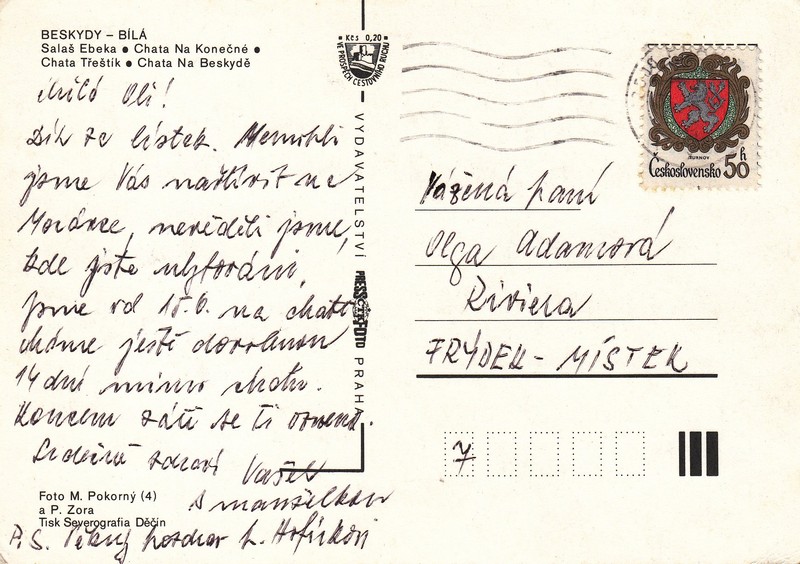 BESKYDY – BÍLÁ
Salaš Ebeka ● Chata Na Konečné ●
Chata Třeštík ● Chata Na Beskydě
Milá Oli!
Dík za lístek. Nemohli
jsme Vás navštívit na
Morávce, nevěděli jsme,
kde jste ubytováni,
jsme od 15.6. na chatě
máme ještě dovolenou
14 dní mimo chatu.
Koncem září se ti ozvenu.
Srdečně zdraví Vašek
s manželkou
P.S. Pěkný pozdrav
Foto M. Pokorný (4)
a P. Zora
Tisk Severografia Děčín
Kčs 0,20
VE PROSPĚCH CESTOVNÍHO RUCHU
VYDAVATELSTVÍ PRESSFOTO PRAHA
ČTK
TURNOV
Československo 50 h
Vážená paní
Olga Adamcová
Riviera
FRÝDEK - MÍSTEK
7